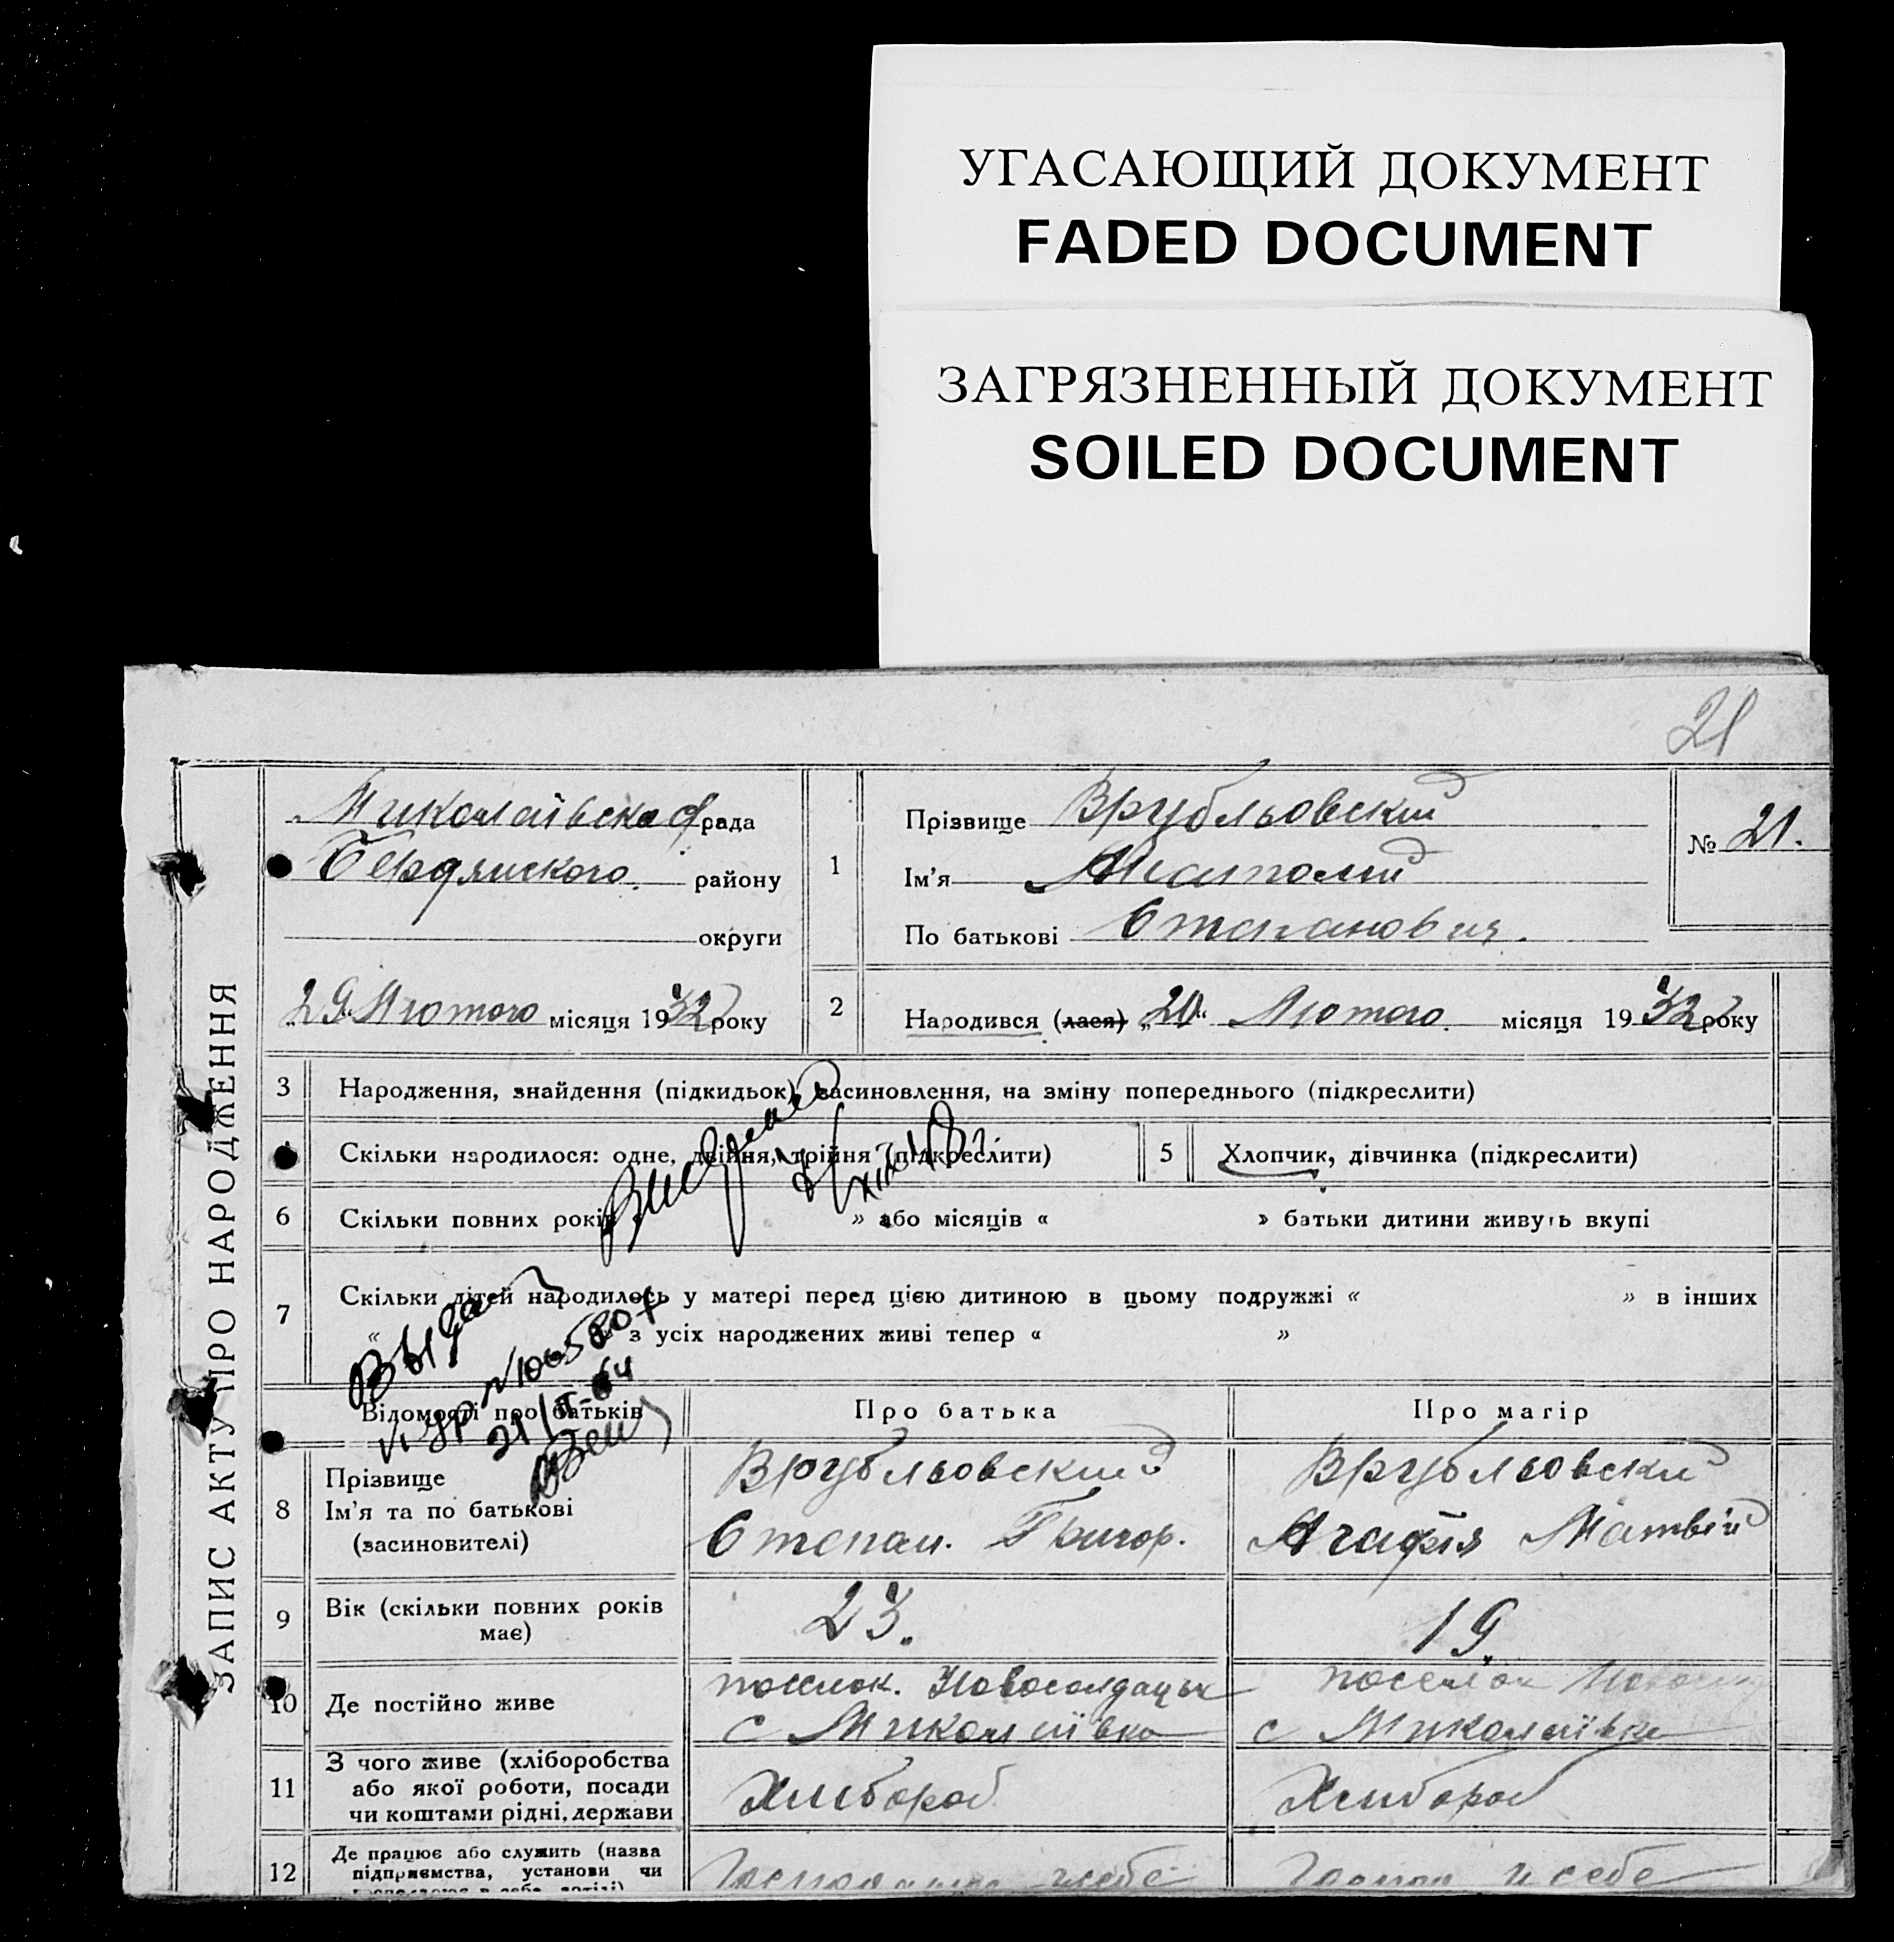 УГАСАЮЩИЙ ДОКУМЕНТ
FADED DOCUMENT
ЗАГРЯЗНЕННЫЙ ДОКУМЕНТ
SOILED DOCUMENT
21
ЗАПИС АКТУ ПРО НАРОДЖЕННЯ
Миколаївська рада
Бердянского району
округи
„29“ Лютого місяця 1932 року
1
Прізвище Врубльовский
Ім'я Анатолий
По батькові Степанович.
№ 21.
2
Народився (лася) „20“ Лютого місяця 1932 року
3 Народження, знайдення (підкидьок), засиновлення, на зміну попереднього (підкреслити)
4 Скільки народилося: одне, двійня, трійня (підкреслити)
5 Хлопчик, дівчинка (підкреслити)
6 Скільки повних років » або місяців « » батьки дитини живуть вкупі
7 Скільки дітей народилось у матері перед цією дитиною в цьому подружжі « » в інших
« з усіх народжених живі тепер « »
Выдан
21/II-64
Відомості про батьків
Про батька
Про матір
8 Прізвище
Ім'я та по батькові
(засновителі)
Врубльовский
Степан. Григор.
Врубльовски
Агафія Матвій
9 Вік (скільки повних років має)
23.
19
10 Де постійно живе
поселок. Новосолдацьк
с Миколаївка
поселок
с Миколаївка
11 З чого живе (хліборобства
або якої роботи, посади
чи коштами рідні, держави
Хлибороб
Хлибороб
12 Де працює або служить (назва
підприємства, установи чи
себе
у себе